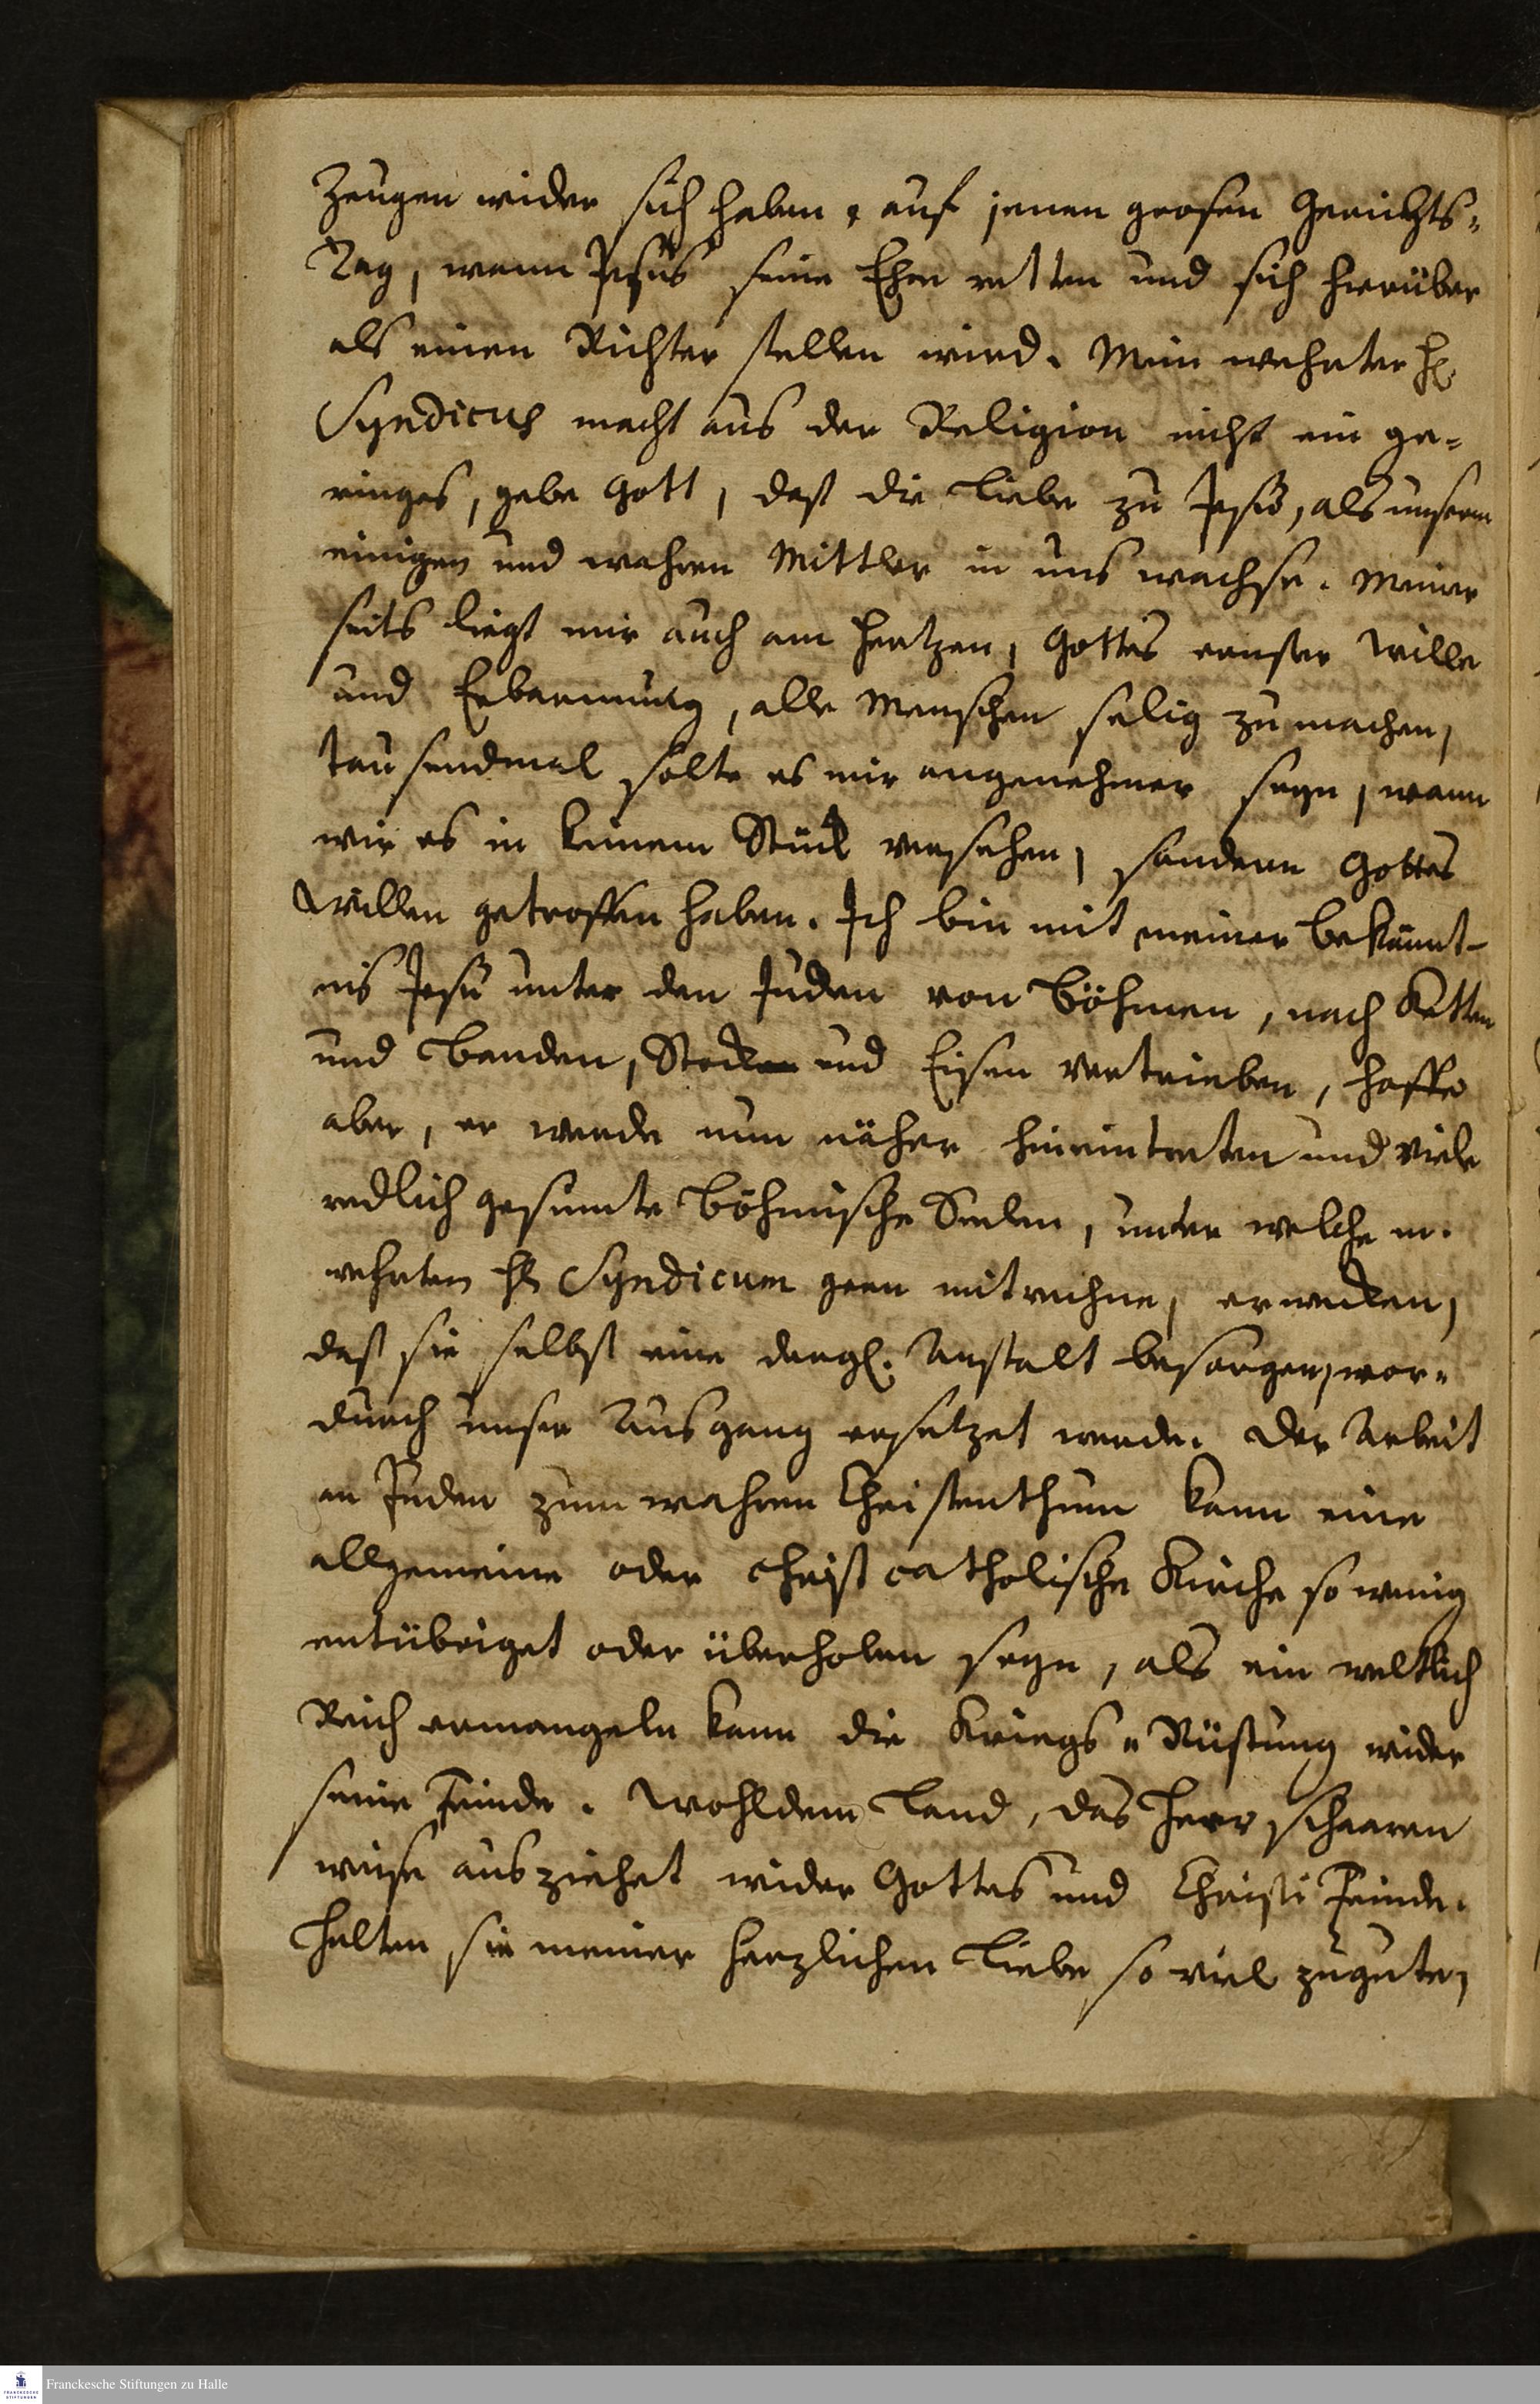 Zeugen wider sich haben, auf jenen grosen Gerichts-
Tag, wenn Jesus seine Ehre retten und sich hierüber
als einen Richter stellen wird. Mein wehrter H.
Syndicus macht aus der Religion nicht ein ge-
ringes, gebe Gott, daß die Liebe zu Jesu, als unserm
einigen und wahren Mittler in uns wachse. Meiner
seits liegt mir auch am Hertzen, Gottes ernster Wille
und Erbarmung, alle Menschen selig zu machen,
tausendmal solte es mir angenehmer seyn, wann
wir es in keinem Stück versehen, sondern Gottes
Willen getroffen haben. Ich bin mit meiner Bekännt-
nis Jesu unter den Juden von Böhmen, nach Ketten
und Banden, Stock und Eisen vertrieben, hoffe
aber, er werde nun näher hineintreten und viele
redlich gesinnte Böhmische Seelen, unter welche m.
wehrten H. Syndicum gern mitrechne, erwecken,
daß sie selbst eine dergl. Anstalt besorgen, wor-
durch unser Ausgang ersetzet werde. Der Arbeit
an Juden zum wahren Christenthum kann eine
allgemeine oder christcatholische Kirche so wenig
entübriget oder überhoben seyn, als ein weltlich
Reich ermangeln kann die Kriegs-Rüstung wider
seine Feinde. Wohl dem Land, das Heer schaaren
weise ausziehet wider Gottes und Christi Feinde.
Halten sie meiner herzlichen Liebe so viel zugute,
Franckesche Stiftungen zu Halle